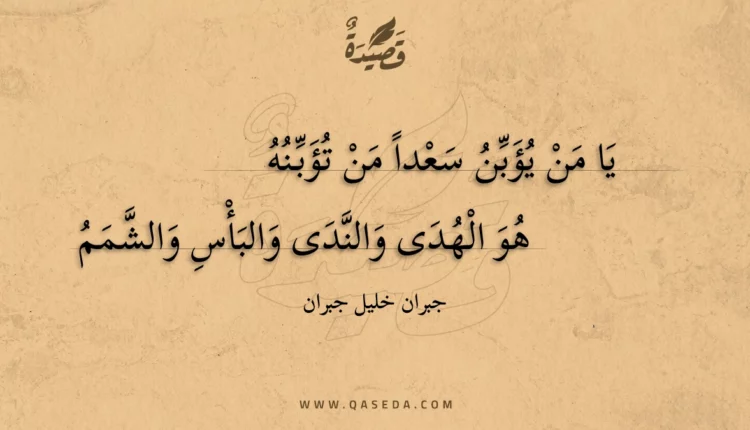 قَصِيْدَةٌ
يَا مَنْ يُؤَبِّنُ سَعْداً مَنْ تُؤَبِّنُهُ
هُوَ الْهُدَى وَالنَّدَى وَالبَأْسِ وَالشَّمَمُ
جبران خليل جبران
WWW.QASEDA.COM